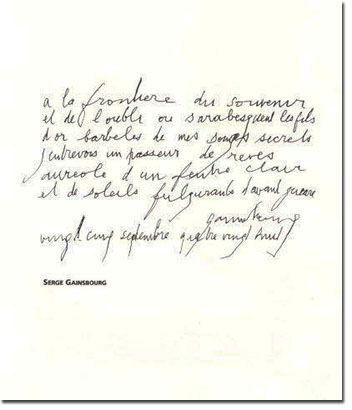 a la frontiere du souvenir
et de l'oubli ou s'arabesquent les fils
d'or barbelés de mes songes secrets
j'entrevois un passeur de reves
aureole d'un feutre clair
et de soleils fulgurants d'avant guerre
gainsbourg
vingt cinq septembre quatre vingt huit
SERGE GAINSBOURG